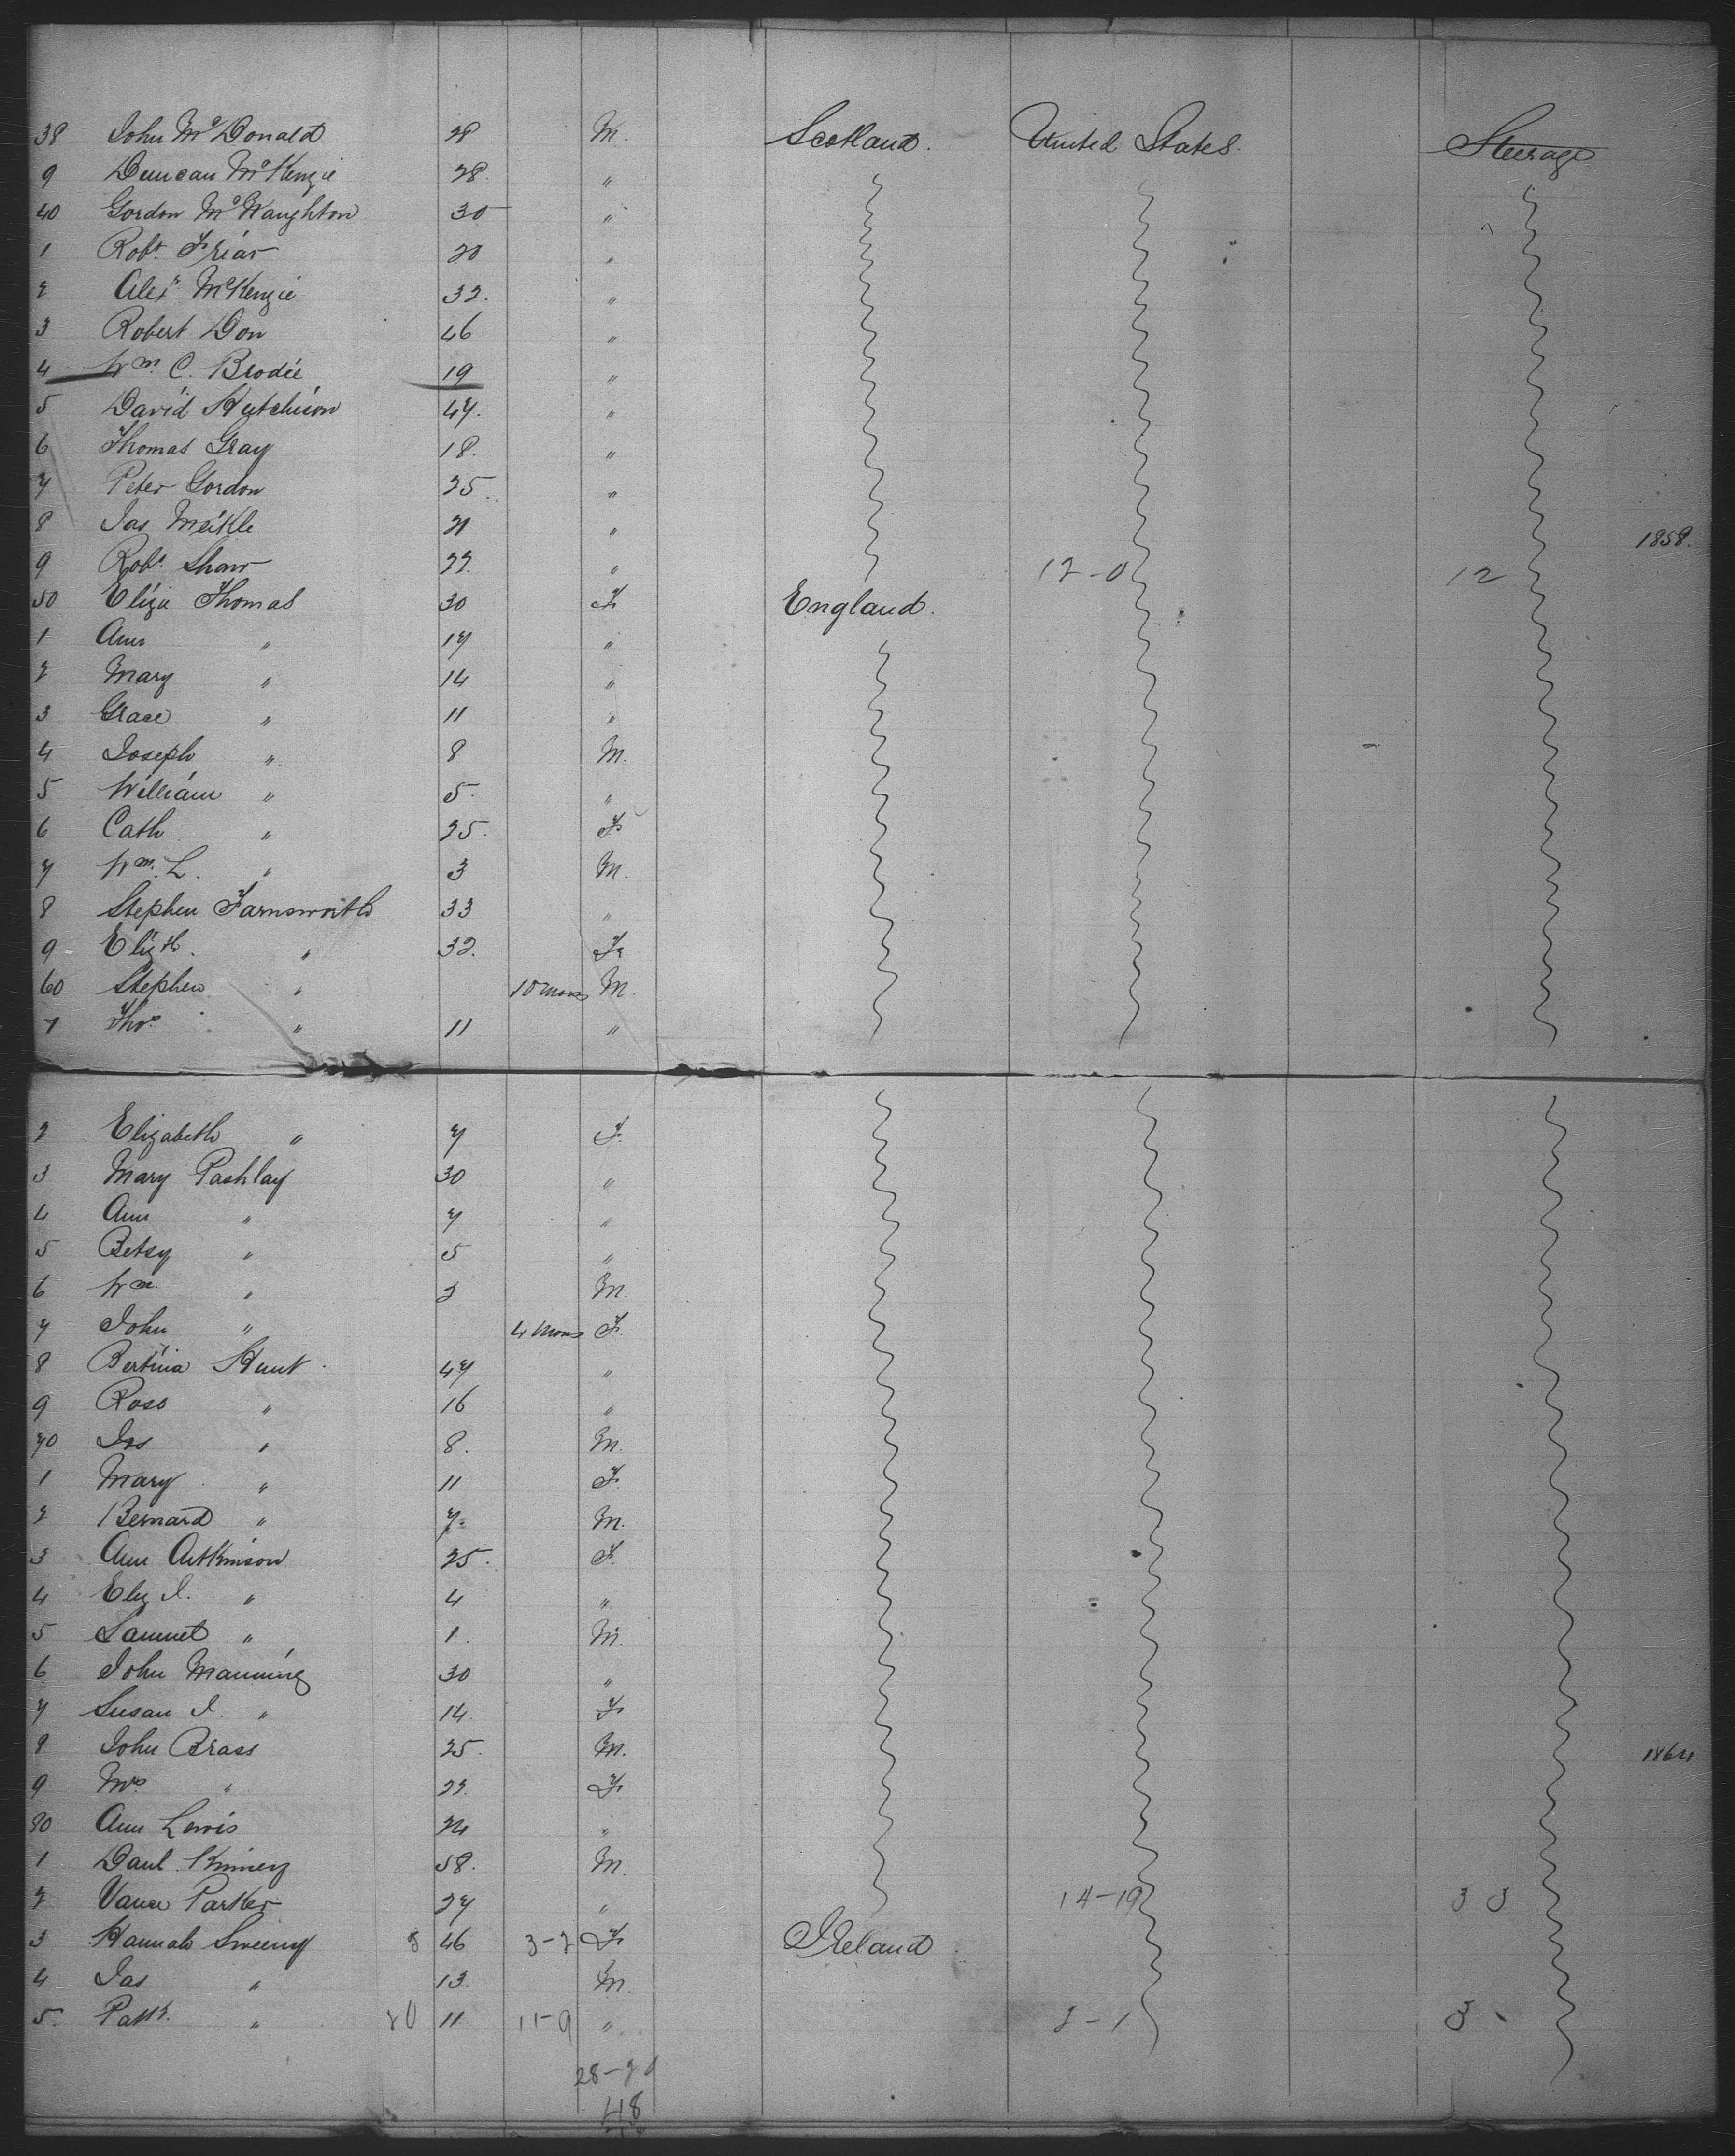 38 John McDonald 28 M. Scotland. United States. Steerage
9 Duncan McKenzie 28. "
40 Gordon McNaughton 30 "
1 Robt. Friar 20 "
2 Alexr McKenzie 32. "
3 Robert Don 46 "
4 Wm. C. Brodie 19 "
5 David Hutchison 47. "
6 Thomas Gray 18. "
7 Peter Gordon 25. "
8 Jas Meikle 21 " 1858.
9 Robt. Shaw 22. " 12-0 12
50 Eliza Thomas 30 F England.
1 Ann " 17 "
2 Mary " 14 "
3 Grace " 11 "
4 Joseph " 8 M.
5 William " 5. "
6 Cath " 25. F
7 Wm. L. " 3 M.
8 Stephen Farnsworth 33 "
9 Elizth. " 32. F
60 Stephen " 10 mons M.
1 Thos. " 11 "
2 Elizabeth " 7 F.
3 Mary Pashlay 30 "
4 Ann " 7 "
5 Betsy " 5 "
6 Wm " 3 M.
7 John " 4 mons F.
8 Bertina Hunt. 47 "
9 Rose " 16 "
70 Jos " 8. M.
1 Mary " 11 F.
2 Bernard " 7 M.
3 Ann Aitkinson 25. F.
4 Eliz J. " 4 "
5 Samuel " 1. M.
6 John Manning 30 "
7 Susan J. " 14. F
8 John Brass 25. M. 1864
9 Mrs " 23. F
80 Ann Lewis 24 "
1 Danl. Kinney 58. M.
2 Parker 27 " 14-19 33
3 Hannah Sweeny 3 46 3-2 F Ireland.
4 Jas " 13. M
5. Patk. " 20 11 11-9 " 2-1 3
28-20
48